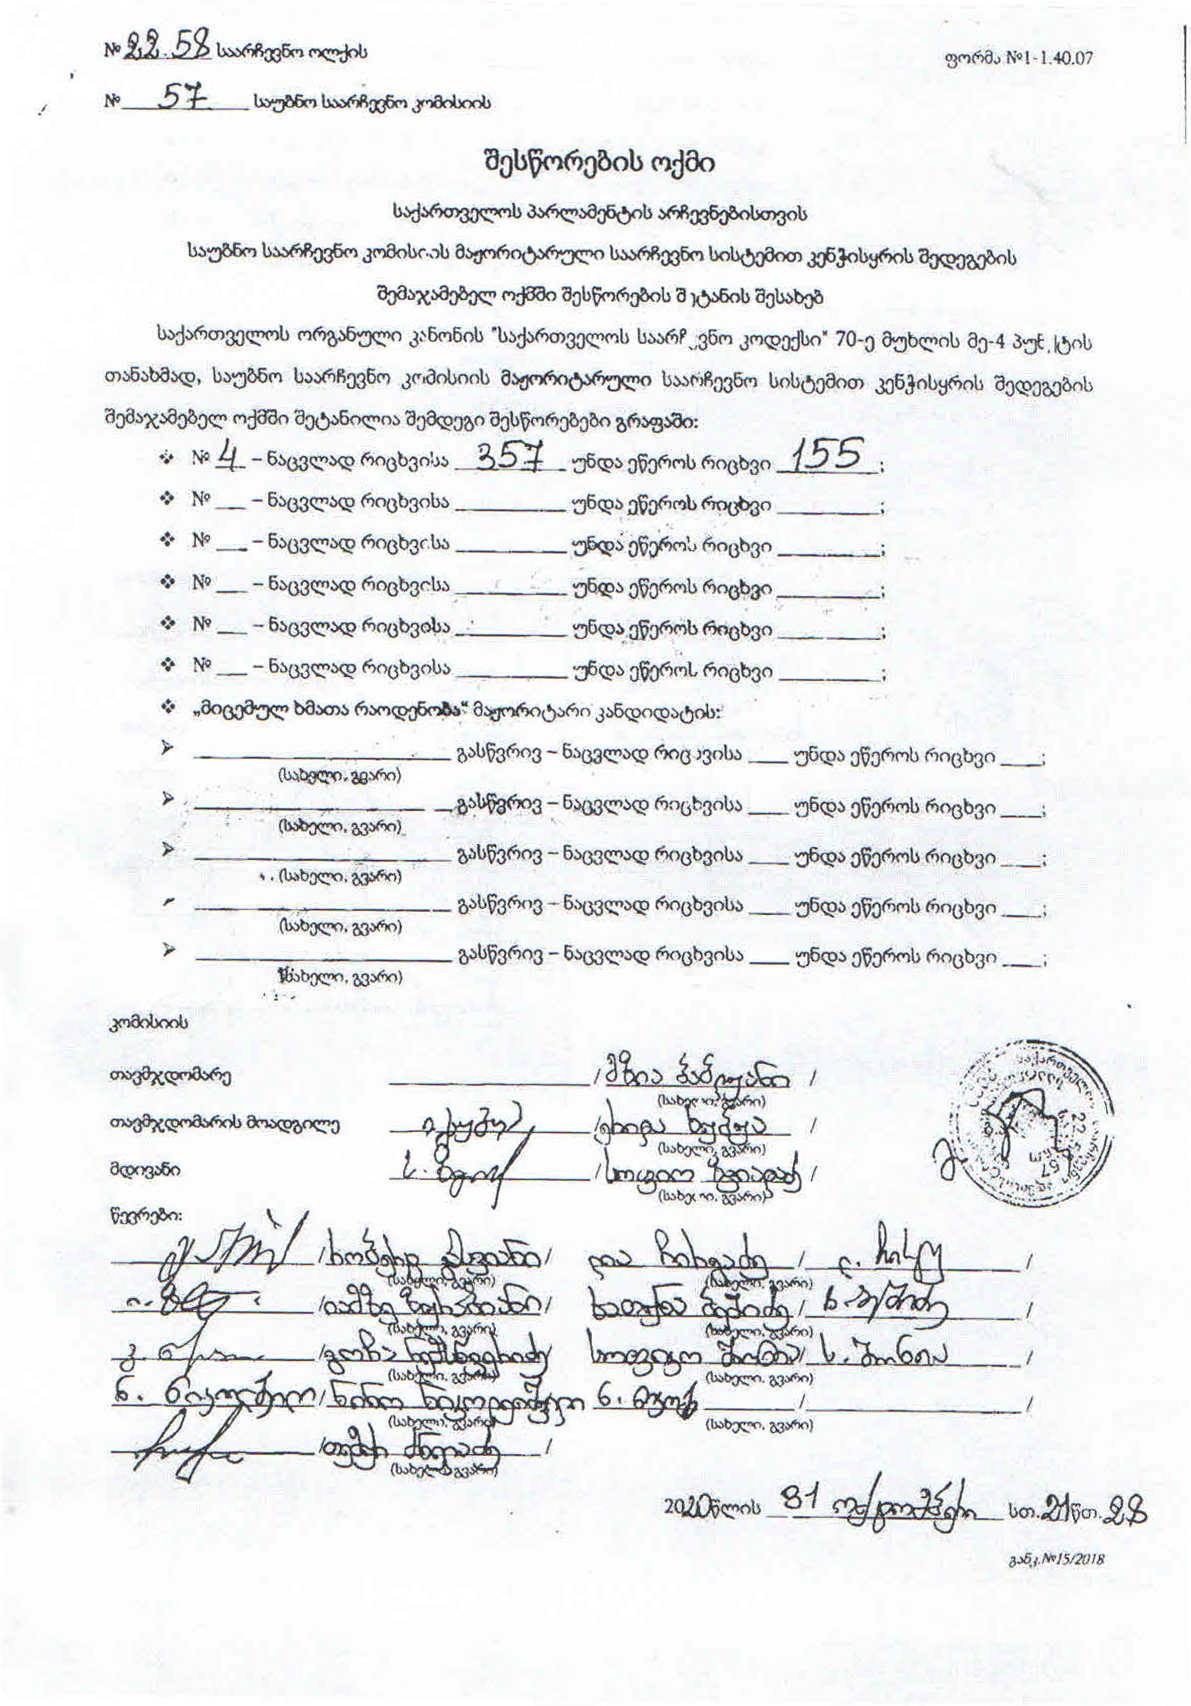 № 22.58 საარჩევნო ოლქის
ფორმა №1-1.40.07
№ 57 საუბნო საარჩევნო კომისიის
შესწორების ოქმი
საქართველოს პარლამენტის არჩევნებისთვის
საუბნო საარჩევნო კომისიის მაჟორიტარული საარჩევნო სისტემით კენჭისყრის შედეგების
შემაჯამებელ ოქმში შესწორების შეტანის შესახებ
საქართველოს ორგანული კანონის "საქართველოს საარჩევნო კოდექსი" 70-ე მუხლის მე-4 პუნქტის
თანახმად, საუბნო საარჩევნო კომისიის მაჟორიტარული საარჩევნო სისტემით კენჭისყრის შედეგების
შემაჯამებელ ოქმში შეტანილია შემდეგი შესწორებები გრაფაში:
❖ № 4 – ნაცვლად რიცხვისა 357 უნდა ეწეროს რიცხვი 155;
❖ № ___ – ნაცვლად რიცხვისა ___ უნდა ეწეროს რიცხვი ___;
❖ № ___ – ნაცვლად რიცხვისა ___ უნდა ეწეროს რიცხვი ___;
❖ № ___ – ნაცვლად რიცხვისა ___ უნდა ეწეროს რიცხვი ___;
❖ № ___ – ნაცვლად რიცხვისა ___ უნდა ეწეროს რიცხვი ___;
❖ № ___ – ნაცვლად რიცხვისა ___ უნდა ეწეროს რიცხვი ___;
❖ „მიცემულ ხმათა რაოდენობა“ მაჟორიტარი კანდიდატის:
➢ ___ გასწვრივ – ნაცვლად რიცხვისა ___ უნდა ეწეროს რიცხვი ___;
(სახელი, გვარი)
➢ ___ გასწვრივ – ნაცვლად რიცხვისა ___ უნდა ეწეროს რიცხვი ___;
(სახელი, გვარი)
➢ ___ გასწვრივ – ნაცვლად რიცხვისა ___ უნდა ეწეროს რიცხვი ___;
(სახელი, გვარი)
➢ ___ გასწვრივ – ნაცვლად რიცხვისა ___ უნდა ეწეროს რიცხვი ___;
(სახელი, გვარი)
➢ ___ გასწვრივ – ნაცვლად რიცხვისა ___ უნდა ეწეროს რიცხვი ___;
(სახელი, გვარი)
კომისიის
თავმჯდომარე ___ / მზია /
(სახელი, გვარი)
თავმჯდომარის მოადგილე / ხუბუა /
(სახელი, გვარი)
მდივანი / სოფიო /
(სახელი, გვარი)
წევრები:
/ / ლია ჩიხლაძე / /
(სახელი, გვარი) (სახელი, გვარი)
/ იამზე / ხათუნა ბეშიძე / /
(სახელი, გვარი) (სახელი, გვარი)
/ გოჩა / სოფიკო შონია / ს. შონია /
(სახელი, გვარი) (სახელი, გვარი)
/ ნინო / /
(სახელი, გვარი) (სახელი, გვარი)
/ /
(სახელი, გვარი)
2020 წლის 31 ოქტომბერი სთ. 21 წთ. 28
განკ.№15/2018